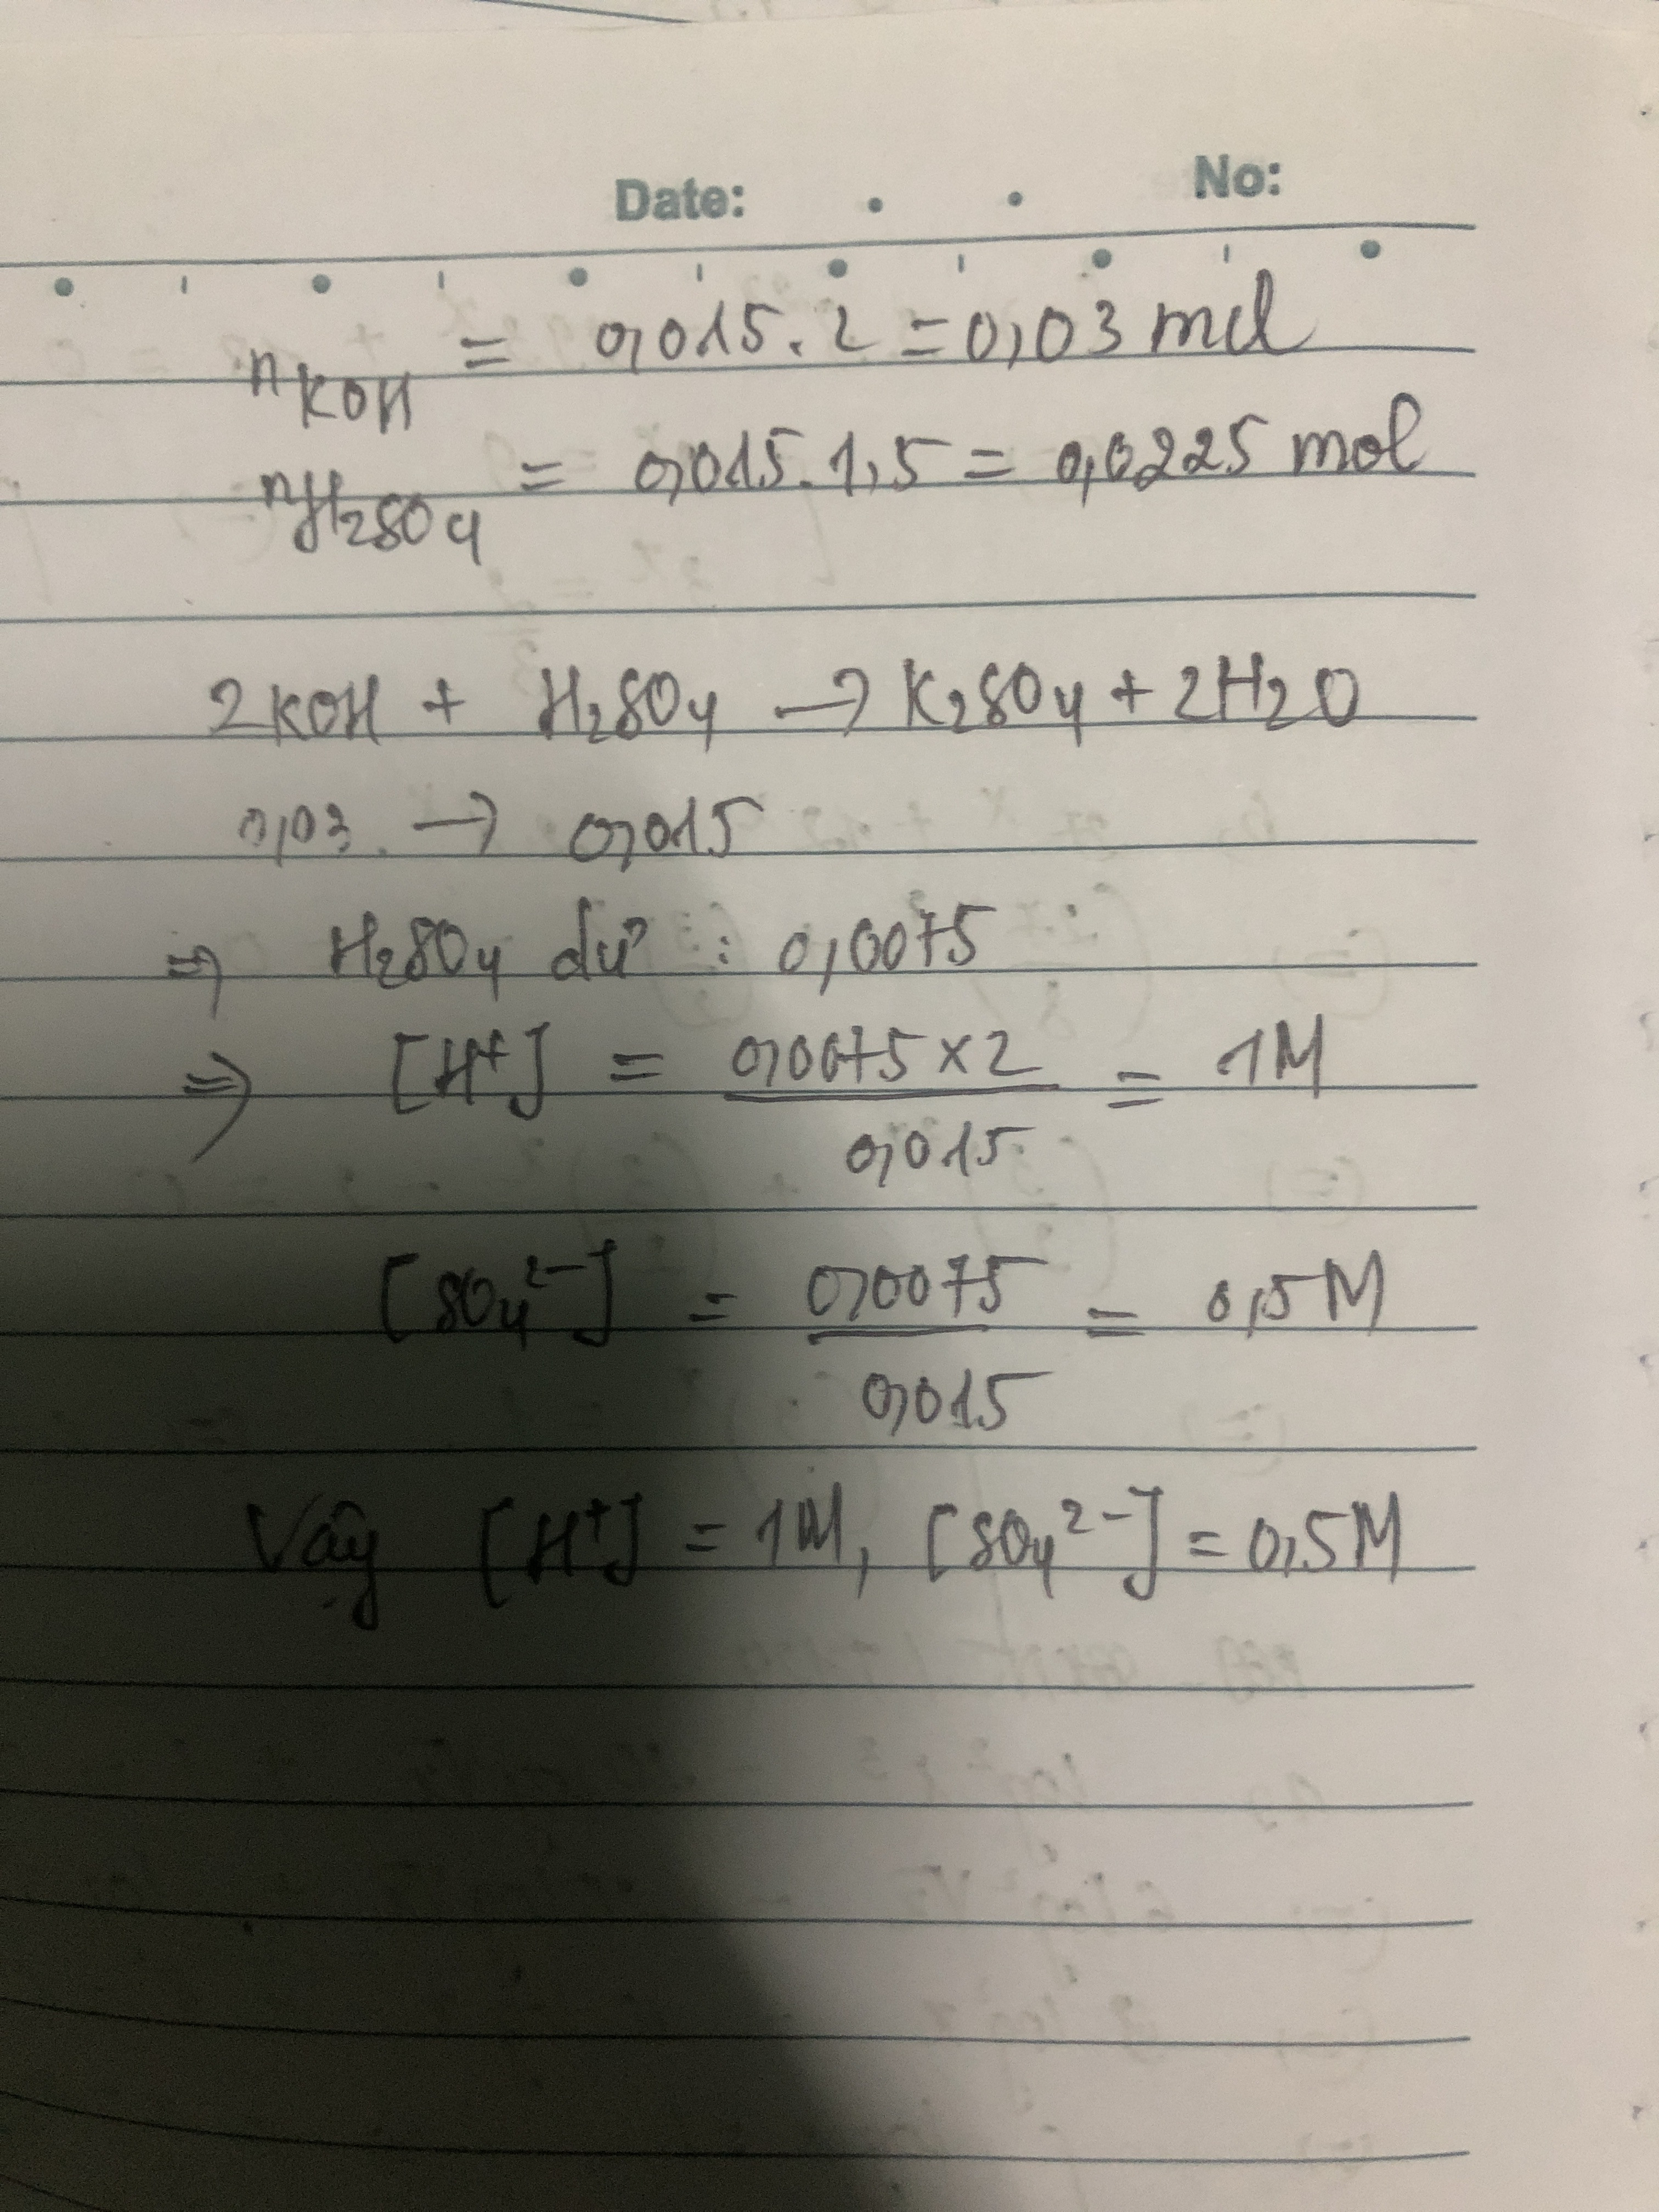 Date: No:
nKOH = 0,015.2 = 0,03 mol
nH₂SO₄ = 0,015.1,5 = 0,0225 mol
2KOH + H₂SO₄ → K₂SO₄ + 2H₂O
0,03 → 0,015
⇒ H₂SO₄ dư : 0,0075
⇒ [H⁺] = 0,0075 × 2 / 0,015 = 1M
[SO₄²⁻] = 0,0075 / 0,015 = 0,5M
Vậy [H⁺] = 1M, [SO₄²⁻] = 0,5M